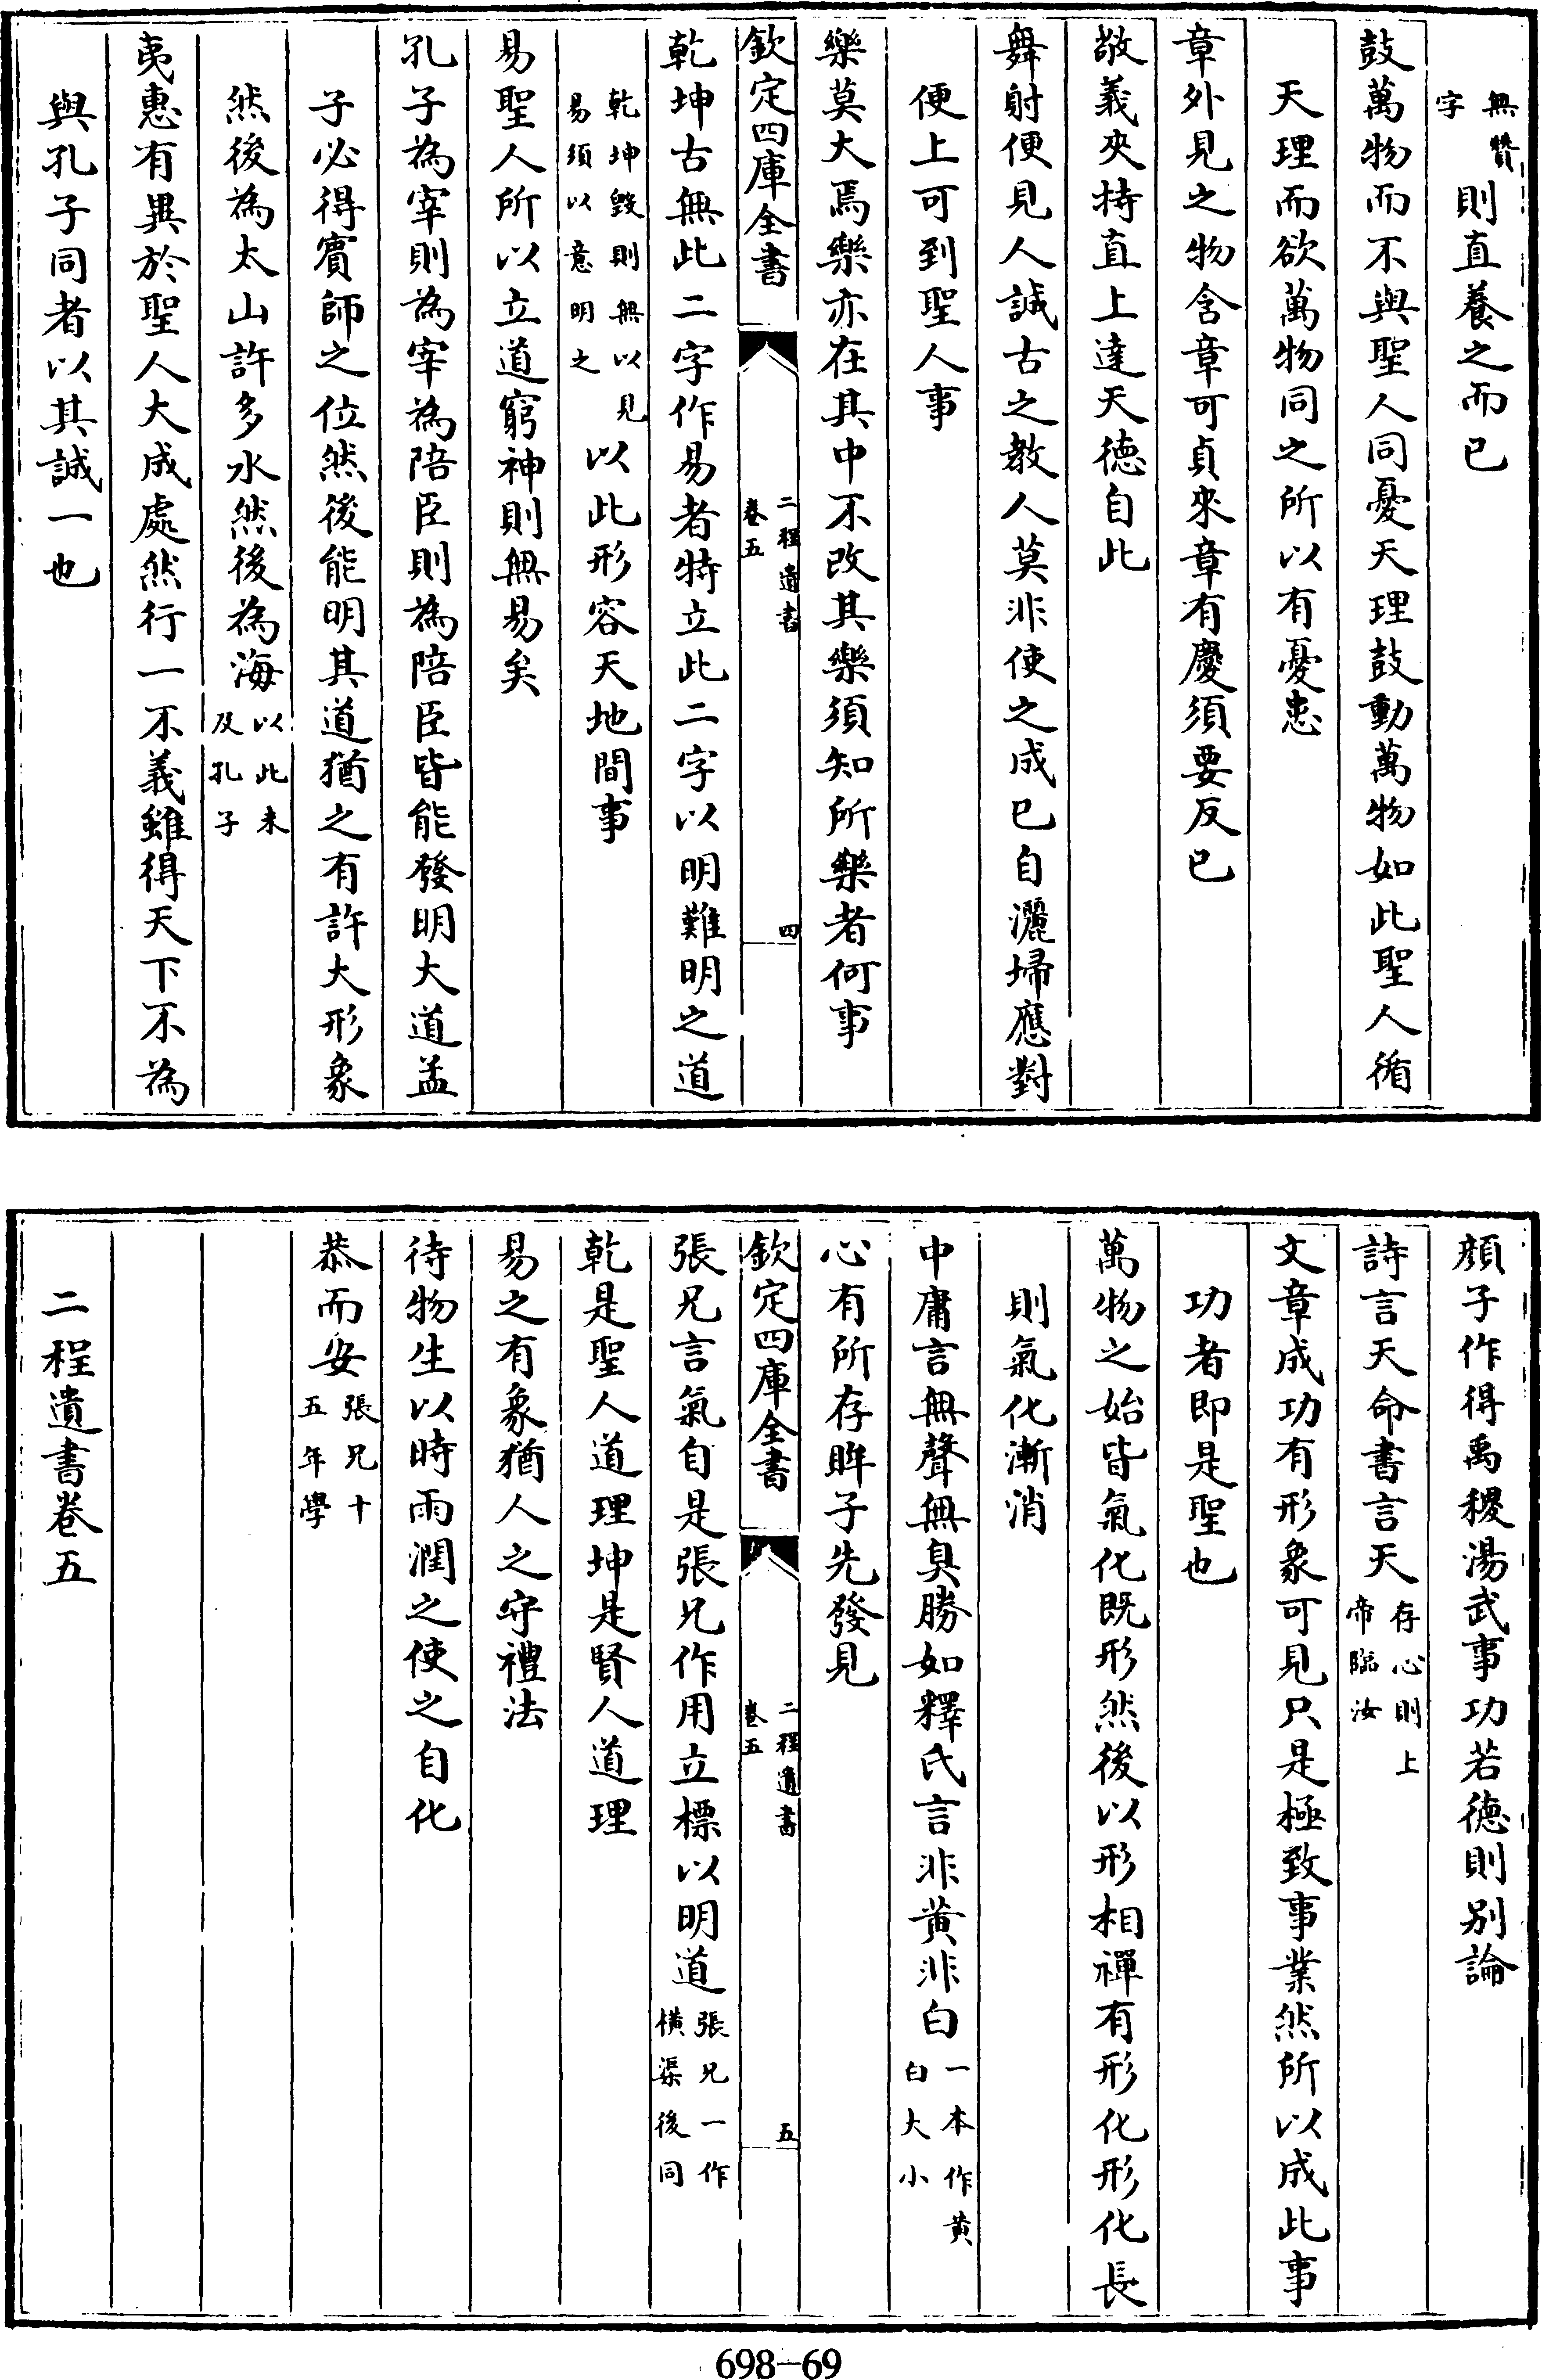 無贊
字
則直養之而已
鼓萬物而不與聖人同憂天理鼓動萬物如此聖人循
天理而欲萬物同之所以有憂患
章外見之物含章可貞來章有慶須要反己
敬義夾持直上達天德自此
舞射便見人誠古之教人莫非使之成己自灑埽應對
便上可到聖人事
樂莫大焉樂亦在其中不改其樂須知所樂者何事
欽定四庫全書
二程遺書
卷五
四
乾坤古無此二字作易者特立此二字以明難明之道
乾坤毀則無以見
易須以意明之
以此形容天地間事
易聖人所以立道窮神則無易矣
孔子為宰則為宰為陪臣則為陪臣皆能發明大道孟
子必得賓師之位然後能明其道猶之有許大形象
然後為太山許多水然後為海
以此未
及孔子
夷惠有異於聖人大成處然行一不義雖得天下不為
與孔子同者以其誠一也
顔子作得禹稷湯武事功若德則别論
詩言天命書言天
存心則上
帝臨汝
文章成功有形象可見只是極致事業然所以成此事
功者即是聖也
萬物之始皆氣化既形然後以形相禪有形化形化長
則氣化漸消
中庸言無聲無臭勝如釋氏言非黄非白
一本作黄
白大小
心有所存眸子先發見
欽定四庫全書
二程遺書
卷五
五
張兄言氣自是張兄作用立標以明道
張兄一作
橫渠後同
乾是聖人道理坤是賢人道理
易之有象猶人之守禮法
待物生以時雨潤之使之自化
恭而安
張兄十
五年學
二程遺書卷五
698-69